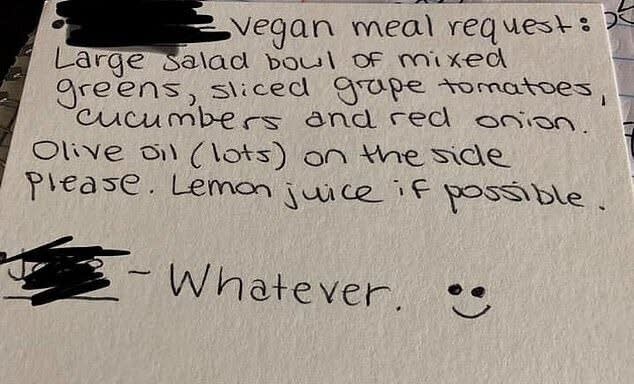 vegan meal request:
Large salad bowl of mixed
greens, sliced grape tomatoes,
cucumbers and red onion.
Olive oil (lots) on the side
please. Lemon juice if possible.
- Whatever.